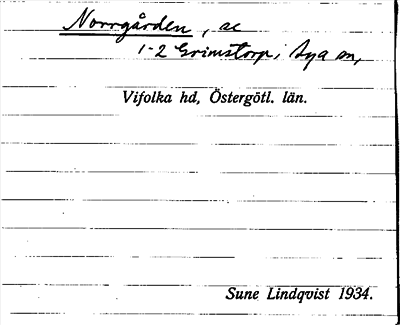 Norrgården, ae
1-2 Grimstorp, Sya sn,
Vifolka hd, Östergötl. län.
Sune Lindqvist 1934.